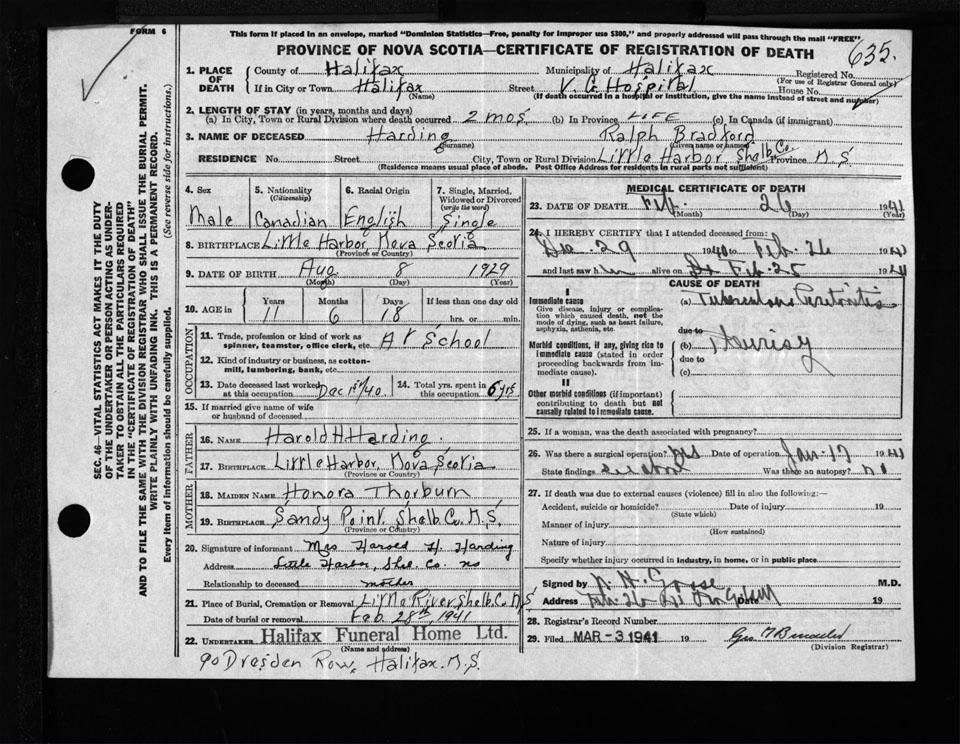 FORM 6
This form if placed in an envelope, marked "Dominion Statistics—Free, penalty for improper use $300," and properly addressed will pass through the mail "FREE"
PROVINCE OF NOVA SCOTIA—CERTIFICATE OF REGISTRATION OF DEATH
635.
SEC. 46—VITAL STATISTICS ACT MAKES IT THE DUTY
OF THE UNDERTAKER OR PERSON ACTING AS UNDER-
TAKER TO OBTAIN ALL THE PARTICULARS REQUIRED
IN THE "CERTIFICATE OF REGISTRATION OF DEATH"
AND TO FILE THE SAME WITH THE DIVISION REGISTRAR WHO SHALL ISSUE THE BURIAL PERMIT.
WRITE PLAINLY WITH UNFADING INK. THIS IS A PERMANENT RECORD.
Every item of information should be carefully supplied. (See reverse side for instructions.)
1. PLACE OF DEATH
County of Halifax Municipality of Halifax Registered No.
(For use of Registrar General only)
If in City or Town Halifax Street V. G. Hospital House No.
(Name) (If death occurred in a hospital or institution, give the name instead of street and number)
2. LENGTH OF STAY (in years, months and days)
(a) In City, Town or Rural Division where death occurred 2 mos. (b) In Province LIFE (c) In Canada (if immigrant)
3. NAME OF DECEASED Harding Ralph Bradford
(Surname) (Given name or names)
RESIDENCE No. Street City, Town or Rural Division Little Harbor Shelb. Co. Province N.S.
(Residence means usual place of abode. Post Office Address for residents in rural parts not sufficient)
4. Sex
Male
5. Nationality
(Citizenship)
Canadian
6. Racial Origin
English
7. Single, Married,
Widowed or Divorced
(write the word)
Single
8. BIRTHPLACE Little Harbor, Nova Scotia
(Province or Country)
9. DATE OF BIRTH Aug 8 1929
(Month) (Day) (Year)
10. AGE in Years Months Days If less than one day old
11 6 18 hrs. or min.
OCCUPATION
11. Trade, profession or kind of work as
spinner, teamster, office clerk, etc. At School
12. Kind of industry or business, as cotton-
mill, lumbering, bank, etc.
13. Date deceased last worked
at this occupation Dec 1st/40 14. Total yrs. spent in
this occupation 6 yrs
15. If married give name of wife
or husband of deceased
FATHER
16. NAME Harold H. Harding.
17. BIRTHPLACE Little Harbor, Nova Scotia
(Province or Country)
MOTHER
18. MAIDEN NAME Honora Thorburn
19. BIRTHPLACE Sandy Point, Shelb. Co. N.S.
(Province or Country)
20. Signature of informant Mrs Harold H. Harding
Address Little Harbor, Shel. Co. NS
Relationship to deceased mother
21. Place of Burial, Cremation or Removal Little River Shelb. C. N.S
Date of burial or removal Feb. 28th, 1941
22. UNDERTAKER Halifax Funeral Home Ltd.
(Name and address)
90 Dresden Row, Halifax. N.S.
MEDICAL CERTIFICATE OF DEATH
23. DATE OF DEATH Feb. 26 1941
(Month) (Day) (Year)
24. I HEREBY CERTIFY that I attended deceased from:
Dec. 29 1940 to Feb. 26 1941
and last saw h im alive on Feb. 25 1941
CAUSE OF DEATH
I
Immediate cause
Give disease, injury or complica-
tion which caused death, not the
mode of dying, such as heart failure,
asphyxia, asthenia, etc.
(a) Tuberculous Peritonitis
due to
Morbid conditions, if any, giving rise to
immediate cause (stated in order
proceeding backwards from im-
mediate cause).
(b) Pleurisy
due to
(c)
II
Other morbid conditions (if important)
contributing to death but not
causally related to immediate cause.
25. If a woman, was the death associated with pregnancy?
26. Was there a surgical operation? yes Date of operation Jan. 17 1941
State findings see above Was there an autopsy? no
27. If death was due to external causes (violence) fill in also the following:—
Accident, suicide or homicide? Date of injury 19
(State which)
Manner of injury
(How sustained)
Nature of injury
Specify whether injury occurred in industry, in home, or in public place
Signed by M.D.
Address Feb. 26 Date 19
28. Registrar's Record Number
29. Filed MAR -3 1941 19
(Division Registrar)